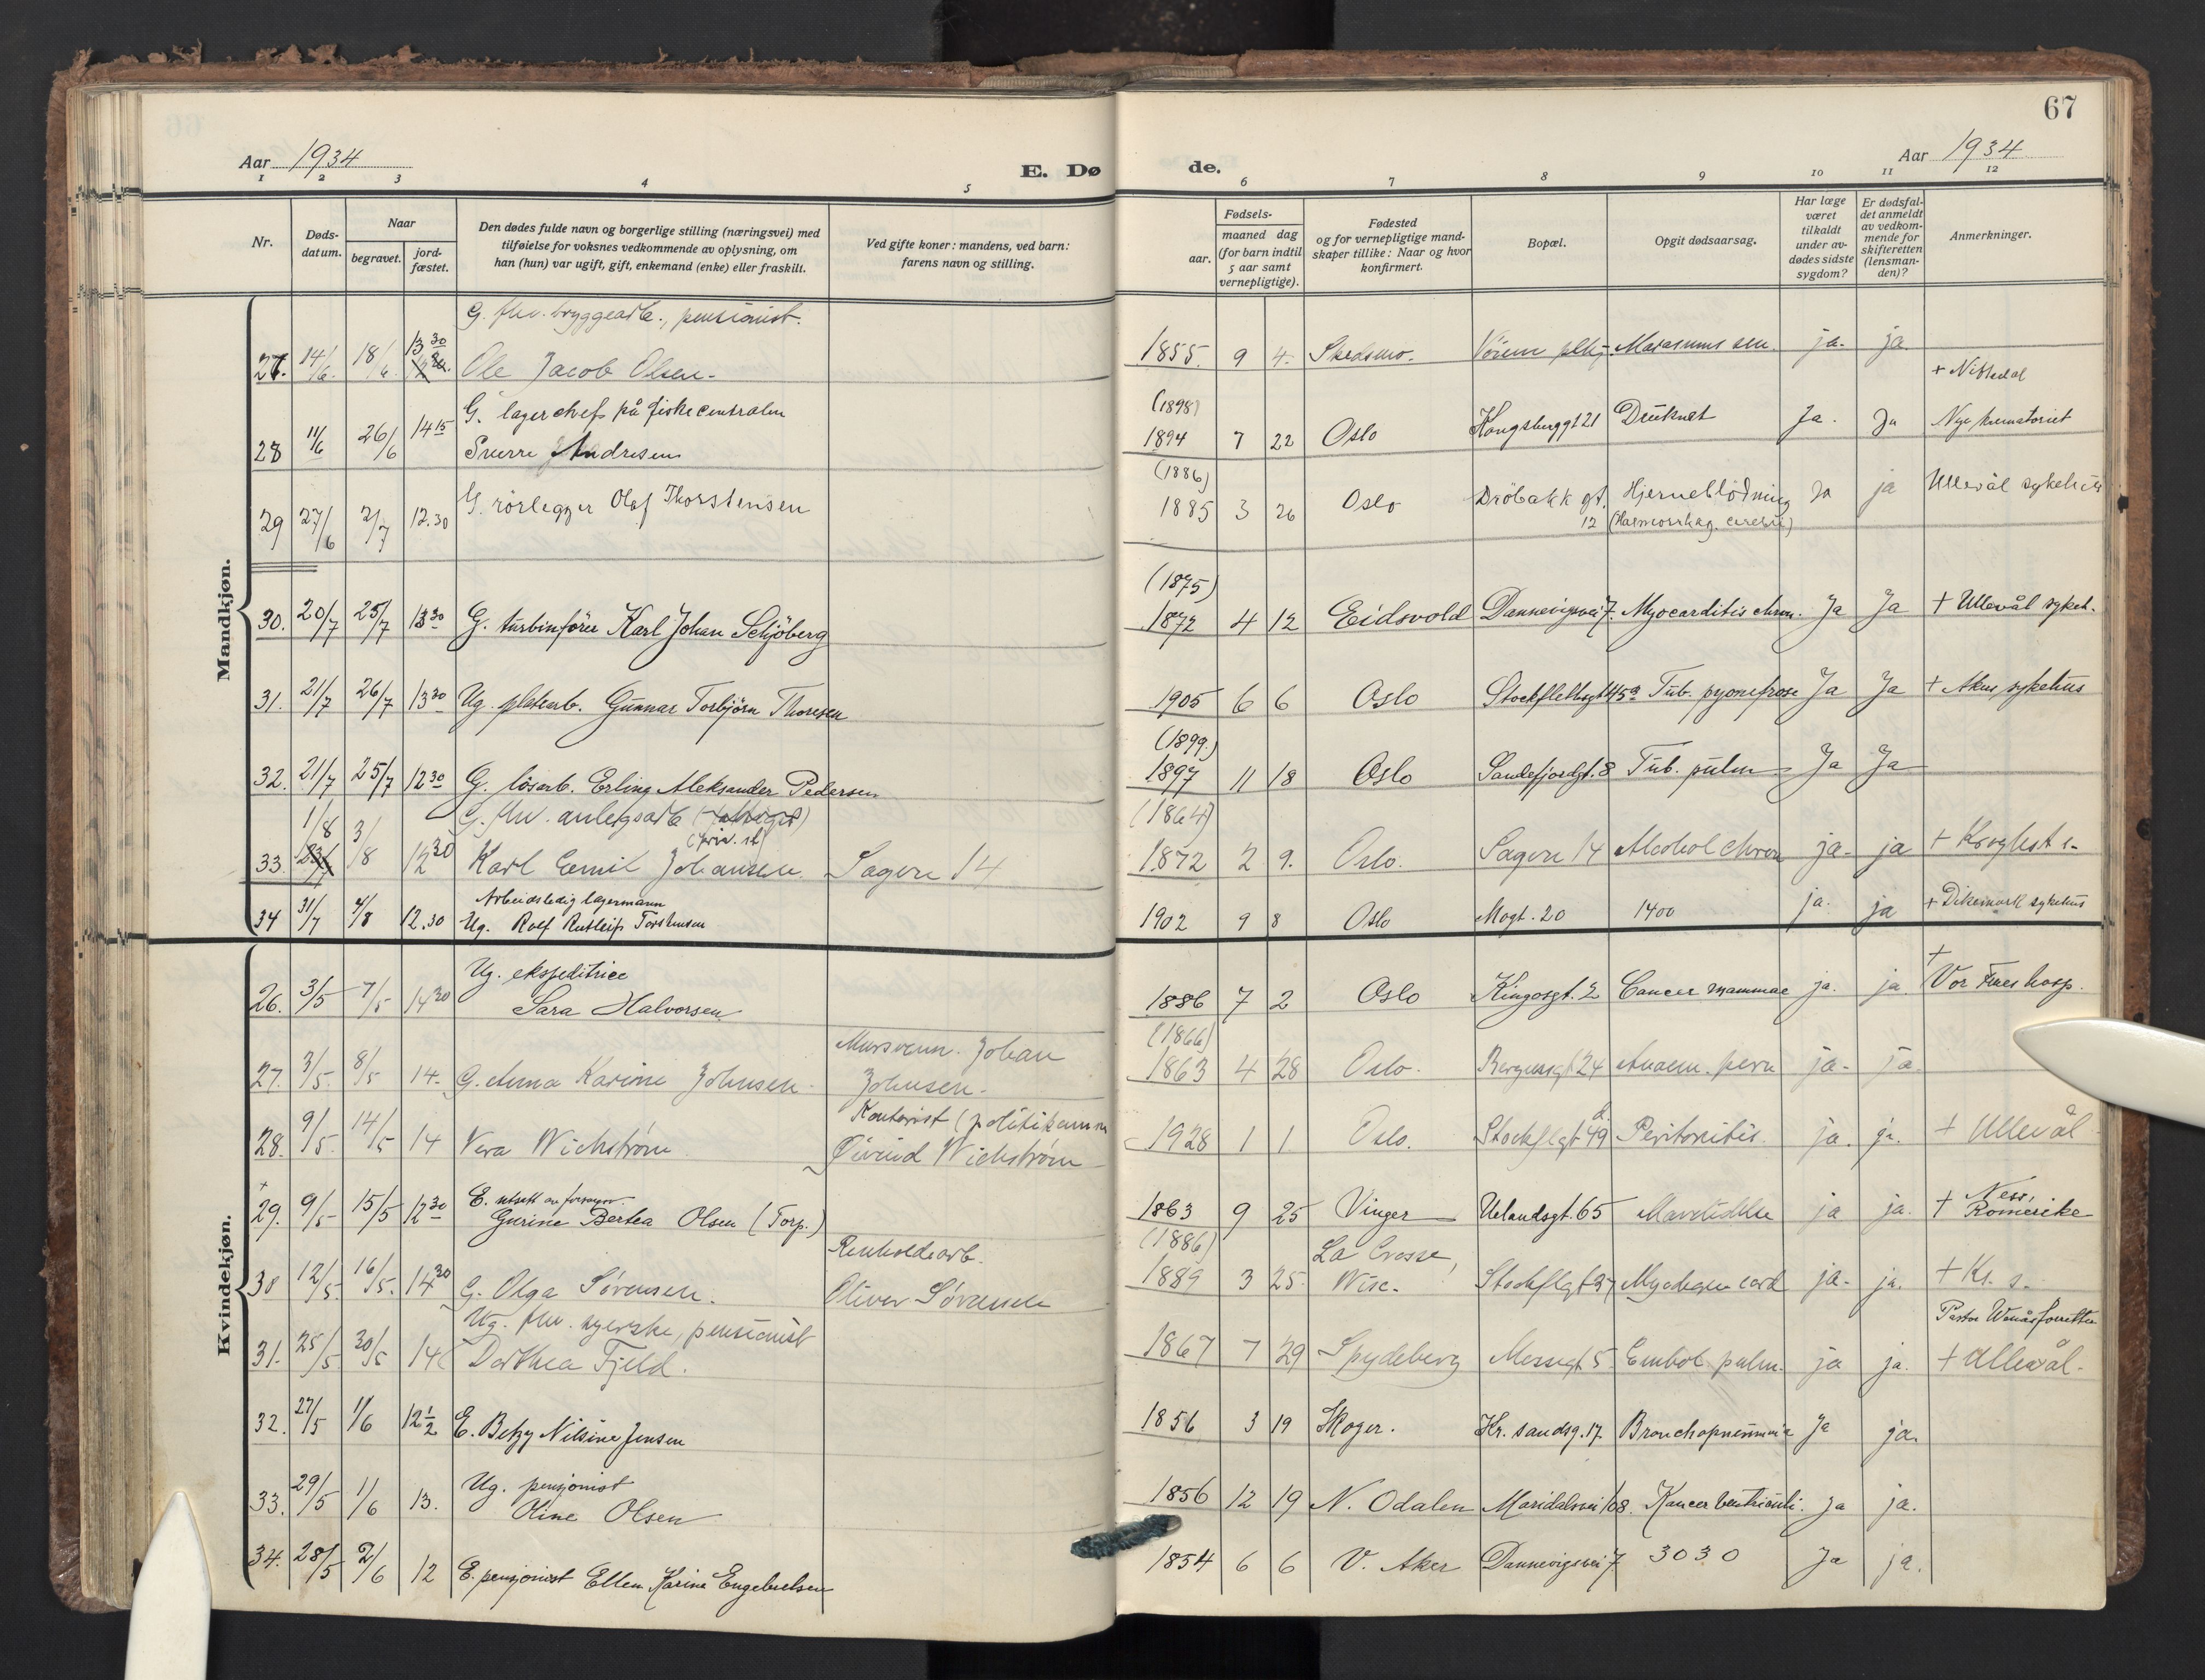 67
Aar 1934
E. Dø
de.
Aar 1934
1 2 3 4 5 6 7 8 9 10 11 12
Nr.
Døds-
datum.
Naar
begravet.
jord-
fæstet.
Den dødes fulde navn og borgerlige stilling (næringsvei) med
tilføielse for voksnes vedkommende av oplysning, om
han (hun) var ugift, gift, enkemand (enke) eller fraskilt.
Ved gifte koner: mandens, ved barn:
farens navn og stilling.
Fødsels-
aar.
maaned dag
(for barn indtil
5 aar samt
vernepligtige).
Fødested
og for vernepligtige mand-
skaper tillike: Naar og hvor
konfirmert.
Bopæl.
Opgit dødsaarsag.
Har læge
været
tilkaldt
under av-
dødes sidste
sygdom?
Er dødsfal-
det anmeldt
av vedkom-
mende for
skifteretten
(lensman-
den)?
Anmerkninger.
Mandkjøn.
G. fhv. bryggearb., pensionist.
27. 14/6. 18/6 13 30 Ole Jacob Olsen. 1855. 9 4. Skedsmo. Marasmus sen. ja. ja.
+ Nittedal
G. lagerchef på fiskecentralen (1898)
28 11/6 26/6 14 15 Sverre Andresen 1894 7 22 Oslo Kongsberggt 21 Druknet Ja. Ja Nye krematoriet
(1886)
29 27/6 2/7 12.30 G. rörlegger Olaf Thorstensen 1885 3 26 Oslo Dröbakk gt. 12 Hjerneblödning Ja ja Ullevål sykehus
(Haemorrhag. cerebri)
(1875)
30. 20/7 25/7 13 30 G. turbinförer Karl Johan Schjöberg 1872 4 12 Eidsvold Dannevigsvei 7. Myocarditis chron. Ja Ja + Ullevål sykeh.
31. 21/7 26/7 13 30 Ug. platearb. Gunnar Torbjörn Thoresen 1905 6 6 Oslo Stockflethsgt 45a Tub. pyonefrose Ja Ja + Akers sykehus
(1899.)
32. 21/7 25/7 12 30 G. lösarb. Erling Aleksander Pedersen 1897 11 18 Oslo Sandefjordgt. 8 Tub. pulm Ja Ja
G. fhv. anlegsarb (1864)
33. 1/8 3/8 12 30 Karl Emil Johansen. Sagene 14 1872 2 9. Oslo. Sagene 14 Alcohol chron ja. ja + Kroghst s.
Arbeidsledig lagermann
34 31/7 4/8 12.30 Ug. Rolf Rutleif Torstensen 1902 9 8 Oslo Mogt. 20 1400 ja. ja + Dikemark sykehus
Kvindekjøn.
Ug. ekspeditrice
26. 3/5 7/5 14 30 Sara Halvorsen 1886 7 2 Oslo Kingosgt. 2 Cancer mammae ja. ja. + Vor Frues hosp.
Mursvenn. Johan (1866)
27. 3/5. 8/5 14. G. Anna Karine Johnsen. Johnsen. 1863 4 28 Oslo. Bergensgt 24 Anaem. pern ja. ja
Kontorist (politikamm
28. 9/5. 14/5 14 Vera Wichstrøm Øivind Wichstrøm 1928 1 1 Oslo. Stockflgt 49 d. Peritonitis. ja. ja. + Ullevål
E. utsatt av forsorgen.
+ 29. 9/5 15/5 12 30 Gurine Bertea Olsen (Torp.) 1863 9 25 Vinger Uelandsgt. 65 Mavelidelse ja ja. + Ness, Romerike
Renholdsarb. (1886) La Crosse,
30 12/5. 16/5. 14 30 G. Olga Sørensen. Oliver Sørensen 1889 3 25. Wisc. Stockflgt 37 Myodegen cord ja. ja. + Kr. s.
Ug. fhv. syerske, pensionist Pastor Wenås forrettet
31. 25/5. 30/5 14 Dorthea Fjeld. 1867 7 29 Spydeberg Messegt. 5 Embol pulm. ja ja. + Ullevål.
32. 27/5 1/6 12 1/2 E. Betzy Nilsine Jensen 1856 3 19 Skoger. Kr. sandsg. 17. Bronchopneumonia Ja ja.
Ug. pensjonist
33. 29/5 1/6 13. Oline Olsen 1856 12 19 N. Odalen Maridalsvei 108. Kancer Ventriculi. ja ja.
34. 28/5 2/6 12 E. pensjonist Ellen Karine Engebretsen 1854 6 6 V. Aker Dannevigsvei 7. 3030 Ja ja.